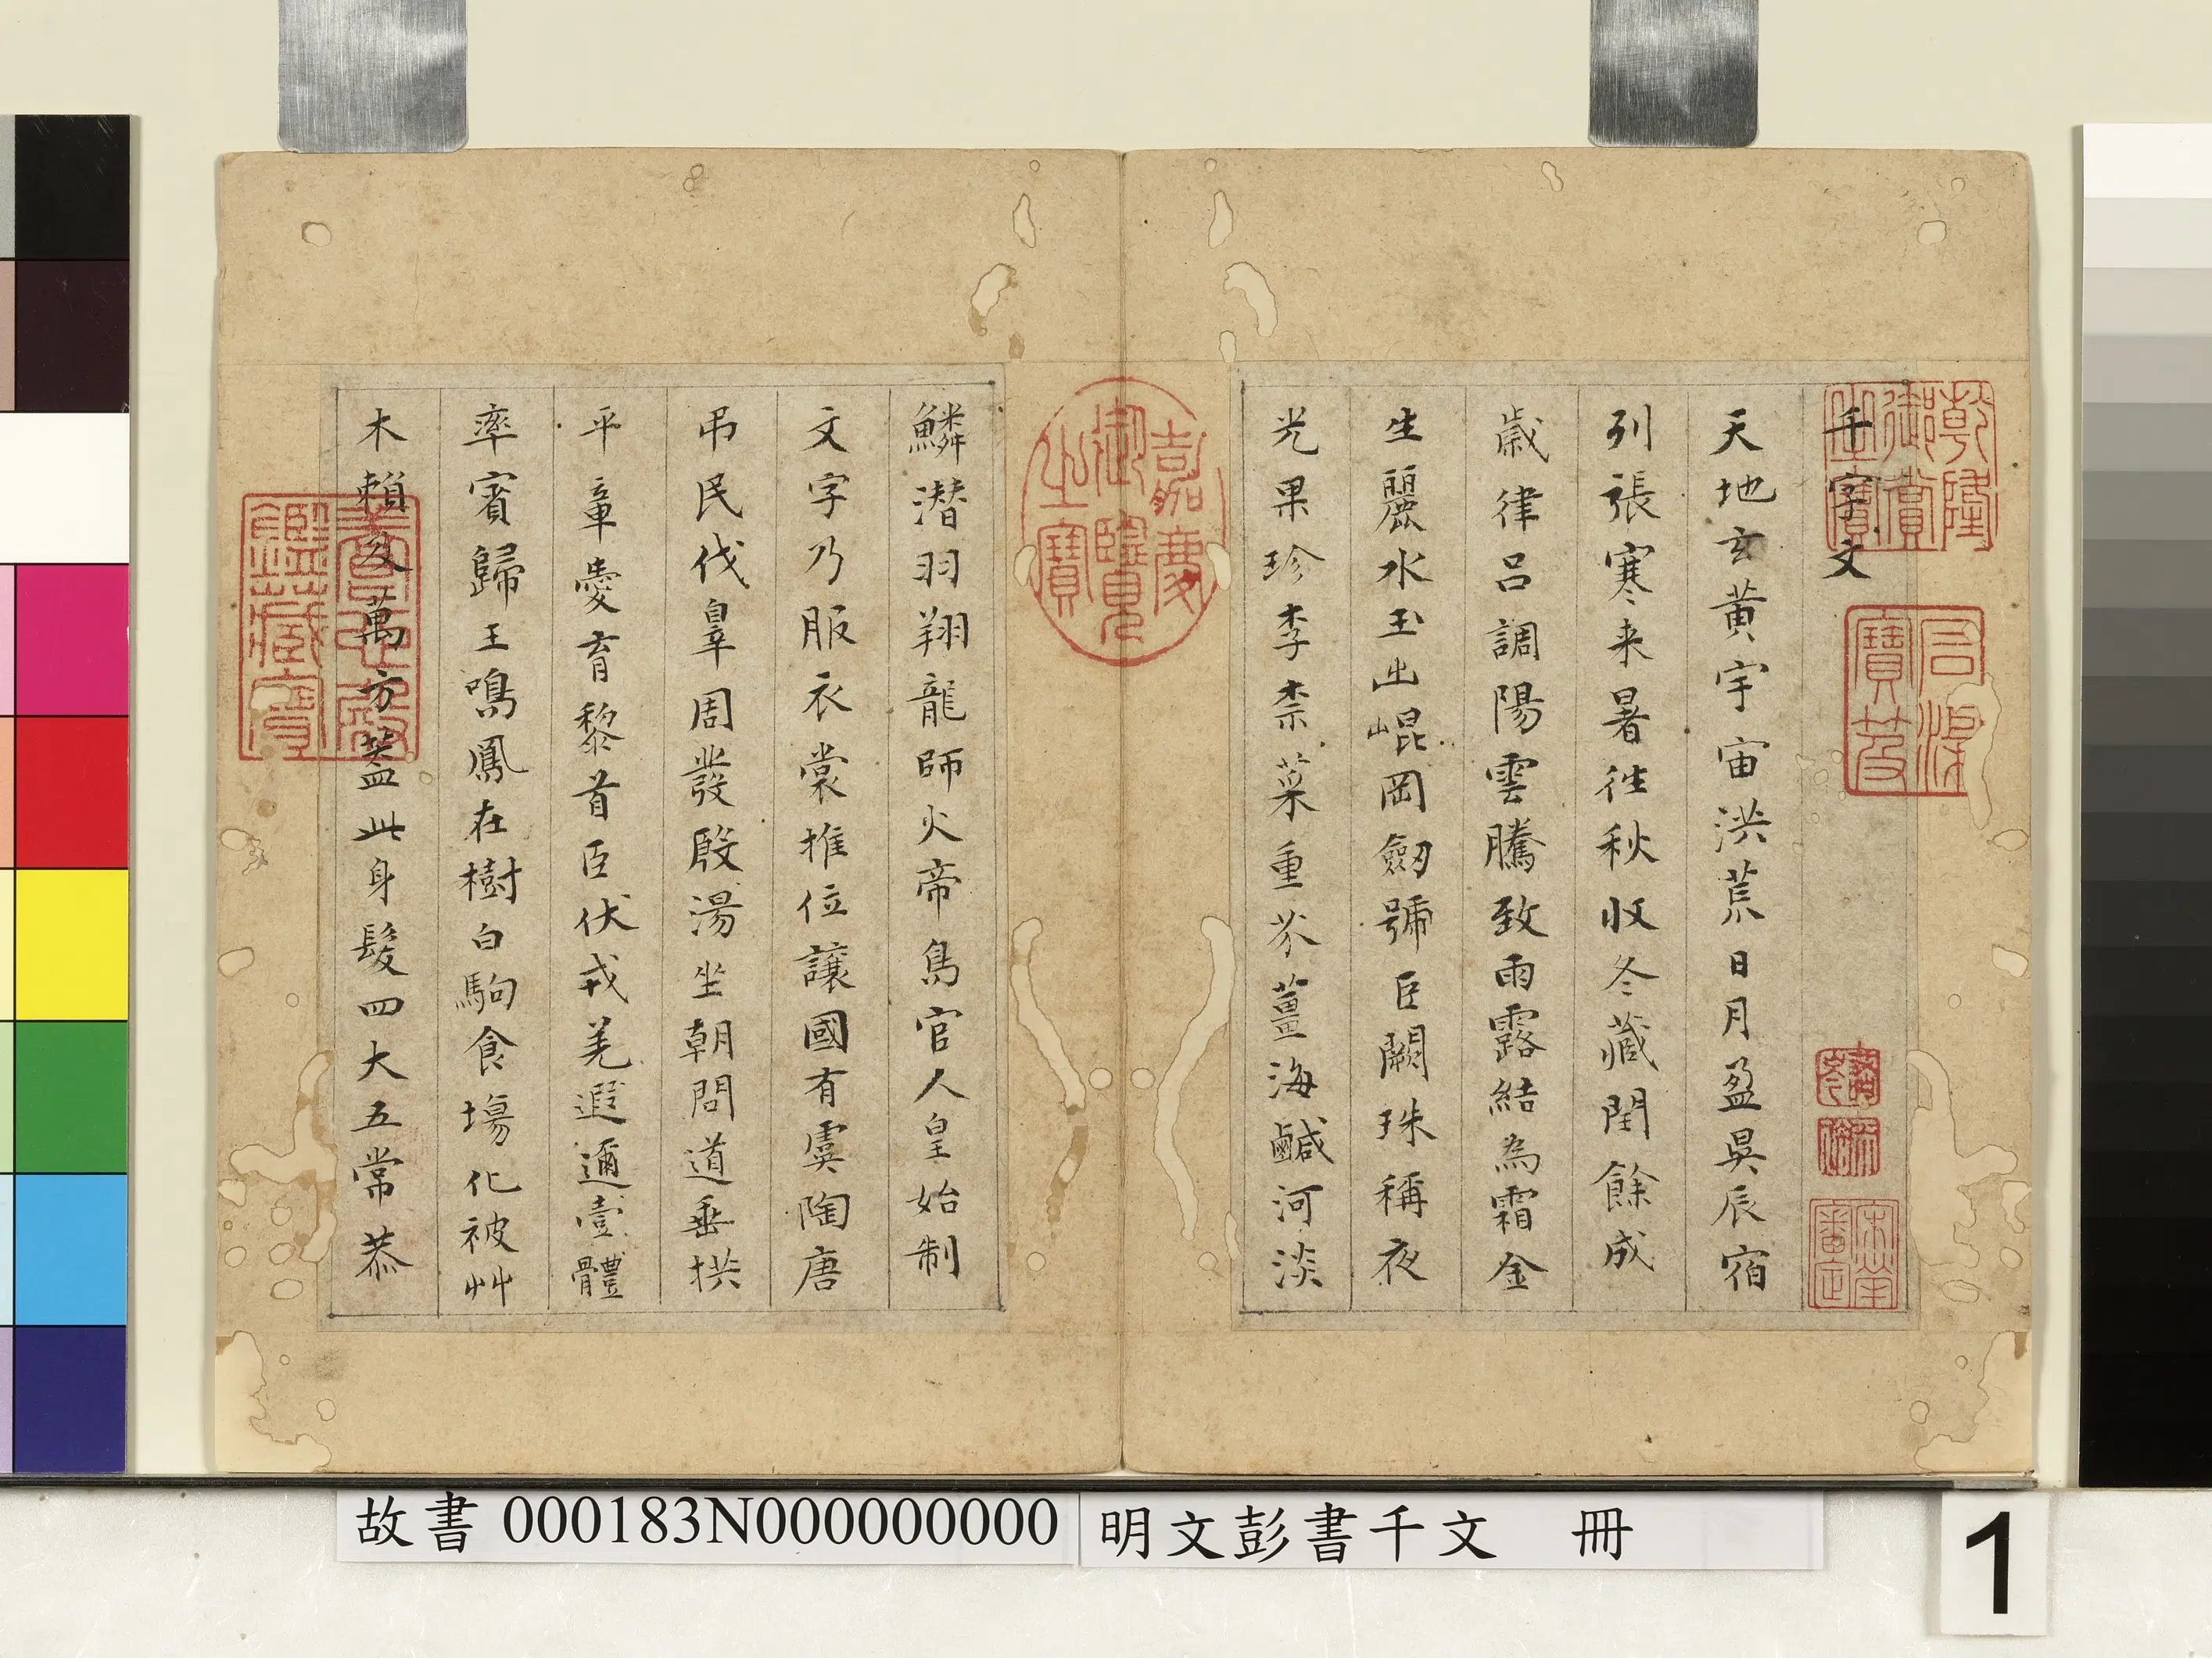 乾隆御賞之寶
千字文
石渠寶笈
宋犖審定
天地玄黃宇宙洪荒日月盈昃辰宿
列張寒来暑往秋收冬藏閏餘成
歲律呂調陽雲騰致雨露結為霜金
生麗水玉出崐岡劒號巨闕珠稱夜
光果珍李柰菜重芥薑海鹹河淡
嘉慶御覽之寶
鱗潛羽翔龍師火帝鳥官人皇始制
文字乃服衣裳推位讓國有虞陶唐
弔民伐辠周發殷湯坐朝問道垂拱
平章愛育黎首臣伏戎羌遐邇壹體
率賓歸王鳴鳳在樹白駒食場化被艸
木賴及萬方蓋此身髮四大五常恭
養心殿鑑藏寶
故書 000183N000000000
明文彭書千文 冊
1